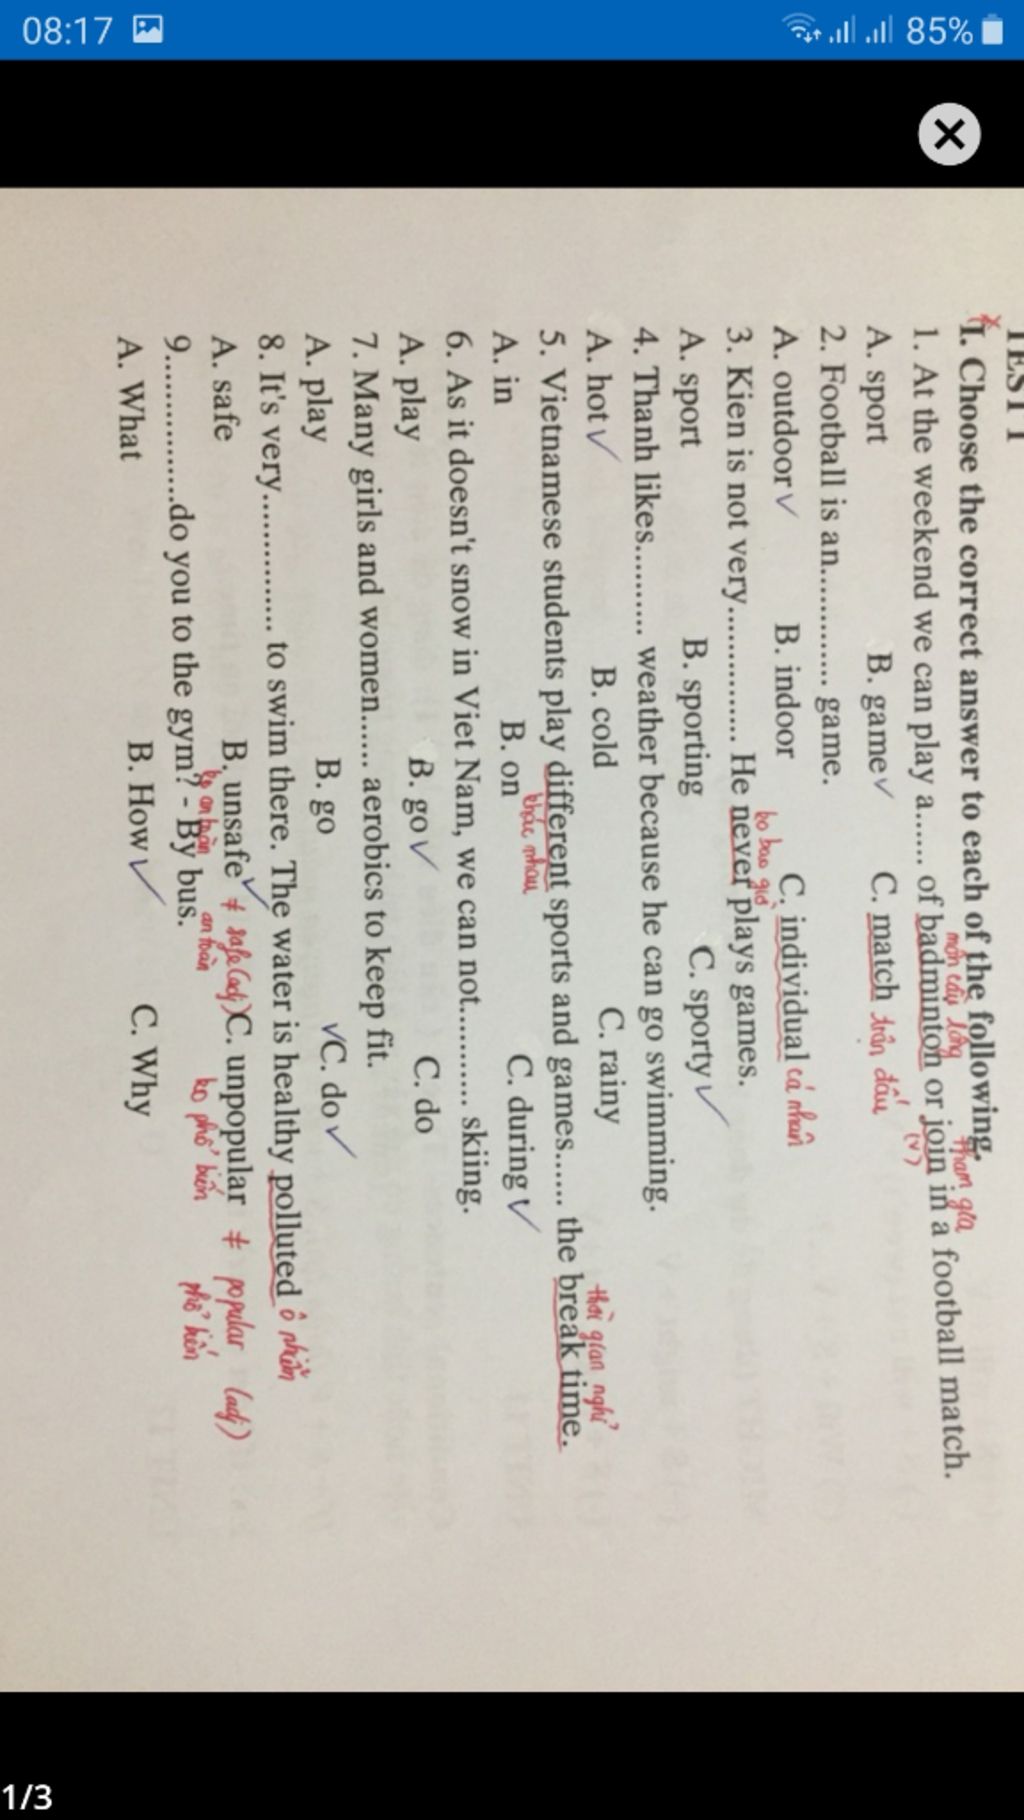 08:17
85%
TEST 1
I. Choose the correct answer to each of the following.
môn cầu lông
tham gia
1. At the weekend we can play a...... of badminton or join in a football match.
(v)
A. sport B. game✓ C. match trận đấu
2. Football is an............ game.
A. outdoor✓ B. indoor C. individual cá nhân
ko bao giờ
3. Kien is not very.............. He never plays games.
A. sport B. sporting C. sporty✓
4. Thanh likes.......... weather because he can go swimming.
A. hot✓ B. cold C. rainy
thời gian nghỉ
5. Vietnamese students play different sports and games...... the break time.
khác nhau
A. in B. on C. during✓
6. As it doesn't snow in Viet Nam, we can not........... skiing.
A. play B. go✓ C. do
7. Many girls and women...... aerobics to keep fit.
A. play B. go ✓C. do✓
8. It's very.............. to swim there. The water is healthy polluted ô nhiễm
A. safe B. unsafe✓ ≠ safe(adj) C. unpopular ≠ popular (adj)
ko an toàn an toàn ko phổ biến phổ biến
9...............do you to the gym? - By bus.
A. What B. How✓ C. Why
1/3